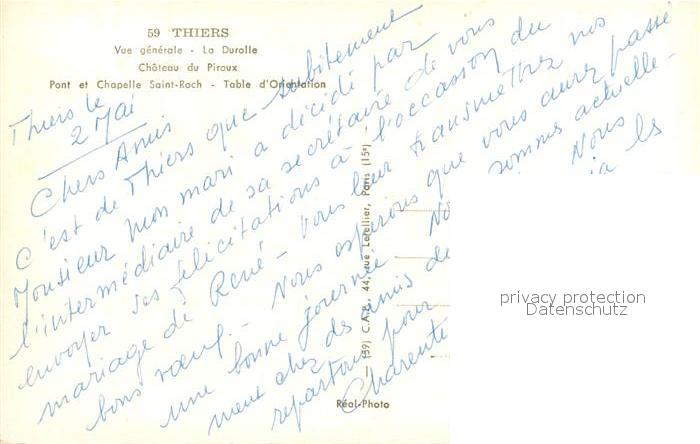 59 THIERS
Vue générale - La Durolle
Château du Piroux
Pont et Chapelle Saint-Roch - Table d'Orientation
Thiers le
2 Mai
Chers Amis
C'est de Thiers que subitement
Monsieur mon mari a décidé par
l'intermédiaire de sa secrétaire de vous
envoyer ses félicitations à l'occasion du
mariage de René - Vous leur transmettrez nos
bons vœux. - Nous espérons que vous aurez passé
une bonne journée. No sommes actuelle-
ment chez des amis de Nous
repartons pour la
Charente
(59) C.A.P., 44, rue Letellier, Paris (15e)
Réal-Photo
privacy protection
Datenschutz